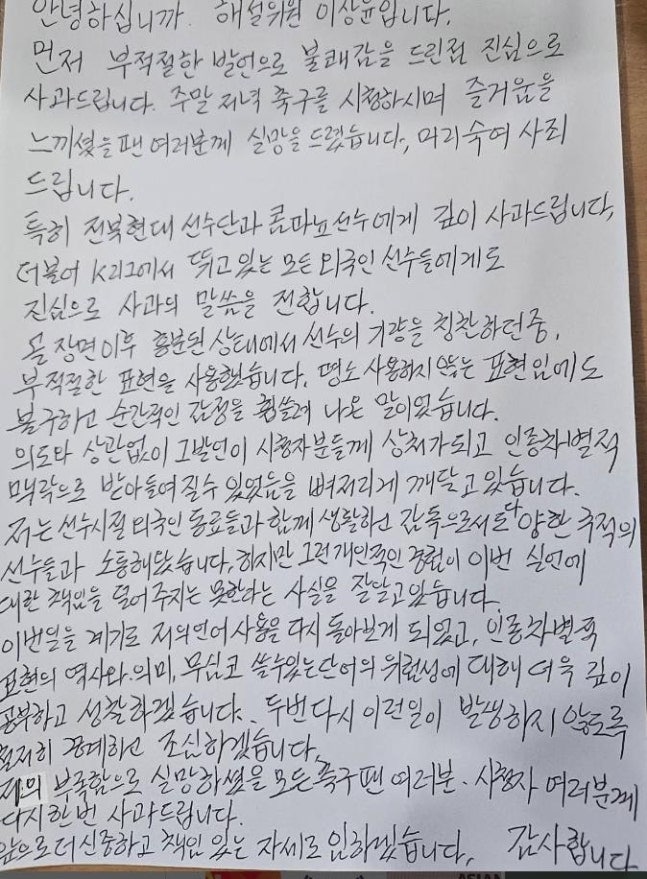 안녕하십니까. 해설위원 이상윤입니다.
먼저 부적절한 발언으로 불쾌감을 드린점 진심으로
사과드립니다. 주말 저녁 축구를 시청하시며 즐거움을
느끼셨을 팬 여러분께 실망을 드렸습니다, 머리숙여 사죄
드립니다.
특히 전북현대 선수단과 콤파뇨선수에게 깊이 사과드립니다,
더불어 K리그에서 뛰고 있는 모든 외국인 선수들에게도
진심으로 사과의 말씀을 전합니다.
골 장면이후 흥분된 상태에서 선수의 기량을 칭찬하던중,
부적절한 표현을 사용했습니다. 평소 사용하지 않는 표현임에도
불구하고 순간적인 감정을 휩쓸려 나온 말이었습니다.
의도와 상관없이 그발언이 시청자분들께 상처가되고 인종차별적
맥락으로 받아들여질수 있었음을 뼈저리게 깨닫고 있습니다.
저는 선수시절 외국인 동료들과 함께 생활하고 감독으로서도 다양한 국적의
선수들과 소통해왔습니다, 하지만 그런개인적인 경험이 이번 실언에
대한 책임을 덜어 주지는 못한다는 사실을 잘알고있습니다.
이번일을 계기로 저의언어사용을 다시 돌아보게 되었고, 인종차별적
표현의 역사와 의미, 무심코 쓸수있는단어의 위험성에 대해 더욱 깊이
공부하고 성찰하겠습니다. 두번다시 이런일이 발생하지 않도록
철저히 경계하고 조심하겠습니다,
저의 부족함으로 실망하셨을 모든축구팬 여러분. 시청자 여러분께
다시한번 사과드립니다.
앞으로더신중하고 책임 있는 자세로 임하겠습니다, 감사합니다